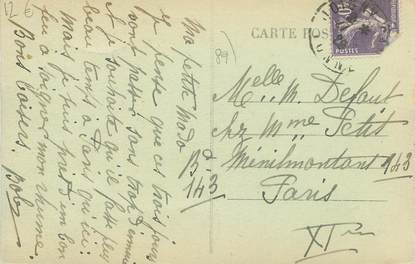 12 €
Ma petite Mado
Je pense que ces trois jours
vont passer sans trop d'ennui
et je souhaite qu'il fasse plus
beau temps à Paris qu'ici.
Mais je suis près d'un bon
feu à soigner mon rhume.
Bons baisers. Bob
CARTE POSTALE
POSTES
Melle M. Defaut
chez Mme Petit
Bd Ménilmontant 143
143
Paris
XIème